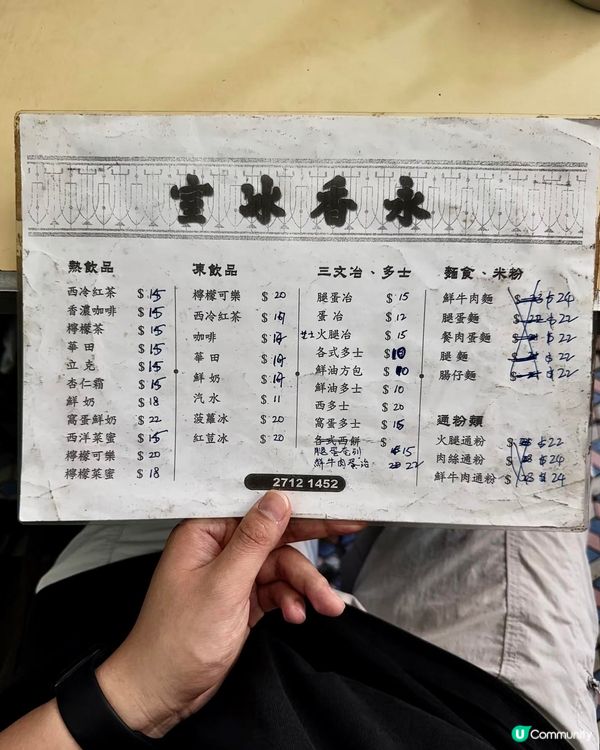 室冰香永
熱飲品
西冷紅茶 $ 15
香濃咖啡 $ 15
檸檬茶 $ 15
華田 $ 15
立克 $ 15
杏仁霜 $ 15
鮮奶 $ 18
窩蛋鮮奶 $ 22
西洋菜蜜 $ 15
檸檬可樂 $ 20
檸檬菜蜜 $ 18
凍飲品
檸檬可樂 $ 20
西冷紅茶 $
咖啡 $
華田 $
鮮奶 $
汽水 $ 11
菠蘿冰 $ 20
紅荳冰 $ 20
三文冶、多士
腿蛋冶 $ 15
蛋冶 $ 12
火腿冶 $ 15
各式多士 $ 10
鮮油方包 $ 10
鮮油多士 $ 10
西多士 $ 20
窩蛋多士 $ 15
各式西餅 $
腿蛋 $15
鮮牛肉蛋冶 22
麵食、米粉
鮮牛肉麵 $ $24
腿蛋麵 $ $22
餐肉蛋麵 $ $22
腿麵 $ $22
腸仔麵 $ $22
通粉類
火腿通粉 $ $22
肉絲通粉 $ $24
鮮牛肉通粉 $ $24
2712 1452
U Community